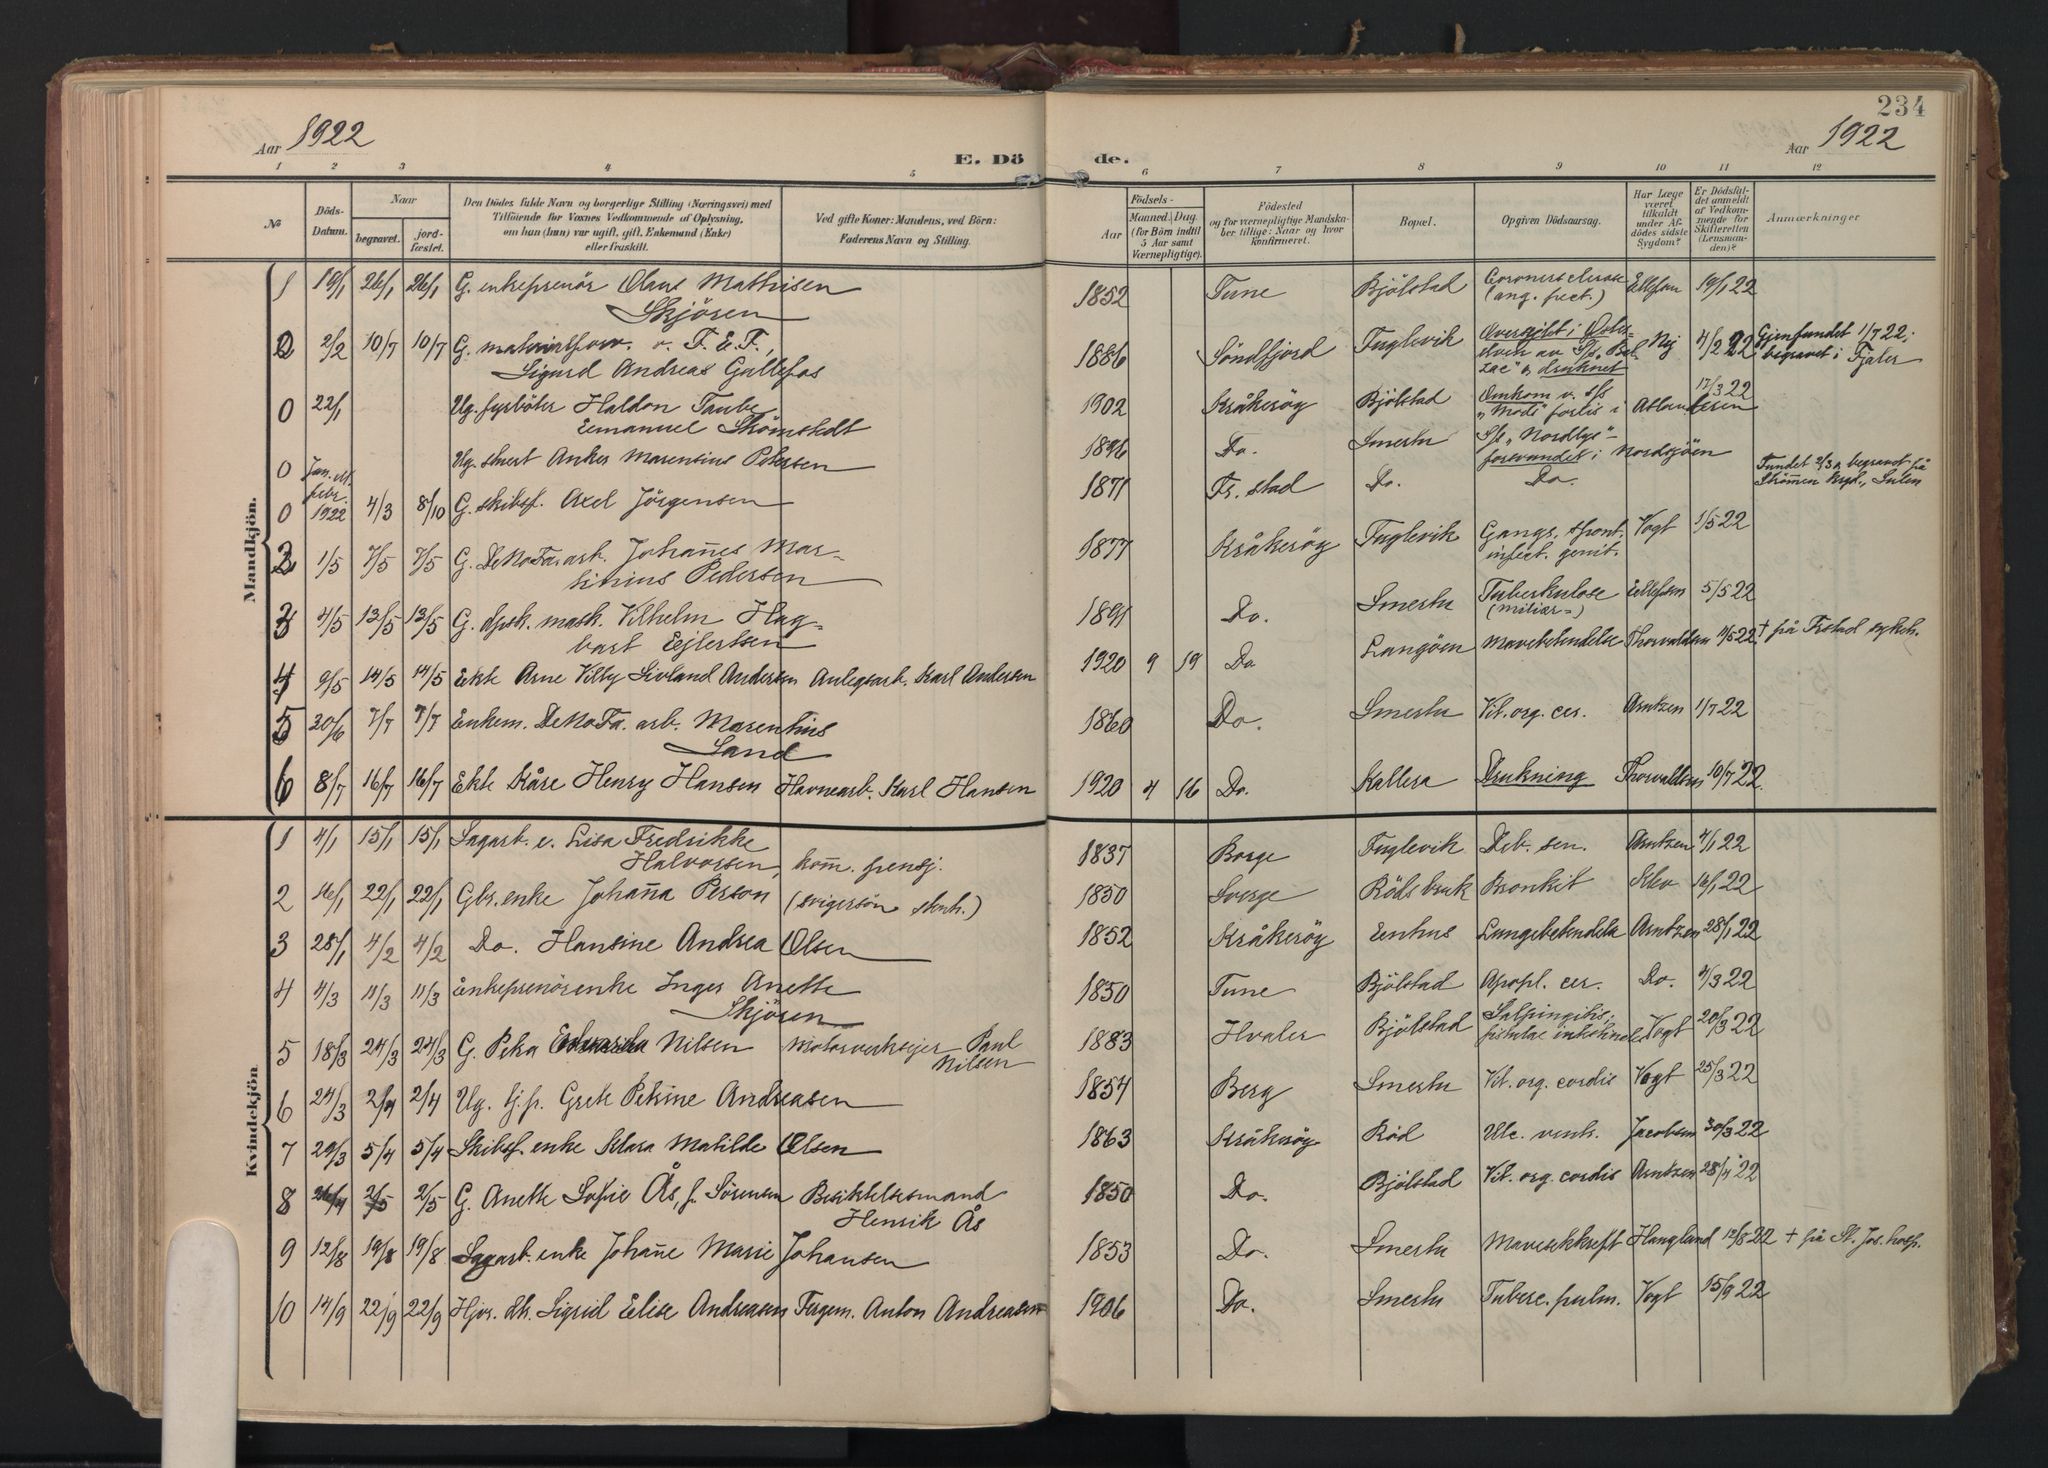 234
Aar 1922
E. Dö
de.
Aar 1922
1 2 3 4 5 6 7 8 9 10 11 12
№
Döds-Datum.
Naar
begravet. jordfæstet.
Den Dödes fulde Navn og borgerlige Stilling (Næringsvei) med
Tilföiende for Voxnes Vedkommende af Oplysning,
om han (hun) var ugift, gift, Enkemand (Enke)
eller fraskilt.
Ved gifte Koner: Mandens, ved Börn:
Faderens Navn og Stilling.
Födsels-
Aar
Maaned. Dag.
(for Börn indtil
5 Aar samt
Værnepligtige).
Födested
og for værnepligtige Mandska-
ber tillige: Naar og hvor
Konfirmeret.
Bopæl.
Opgiven Dödsaarsag.
Har Læge
været
tilkaldt
under Af-
dödes sidste
Sygdom?
Er Dödsfal-
det anmeldt
af Vedkom-
mende for
Skifteretten
(Lensman-
den)?
Anmærkninger
Mandkjön.
1 19/1 26/1 26/1 G. entreprenör Olaus Mathisen
Skjören 1852 Tune Bjölstad (ang. pect.) Ellefsen 19/1 22
2 2/2 10/7 10/7 G. v. F. E. F.,
Sigurd Andreas Gallefos 1886 Söndfjord Fuglevik
& druknet Nej 4/2 22 Gjenfundet 1/7 22;
begravet i Fjaler
0 22/1 Ug. fyrböter Haldon Taube
Emanuel Strömstedt 1902 Kråkeröy Bjölstad Omkom v. s/s
"Mod" forlis i Atlanteren 17/3 22
0 Jan. el. febr. 1922 Ug. stuert Anker Marensius Petersen 1896 Do. Smertu S/s "Nordlys"
forsvundet i Nordsjöen
0 4/3 8/10 G. skibsf. Axel Jörgensen 1871 Fr.stad Do. Do. Fundet 2/3 & begravet på
2 1/5 7/5 7/5 G. DeNoFa. arb. Johañes Mar-
tinius Pedersen 1877 Kråkeröy Fuglevik
infect. genit. Vogt 1/5 22
3 4/5 13/5 13/5 G. mask. Vilhelm Hag-
bart Ejlertsen 1891 Do. Smertu Tuberkulose
(miliær-) Ellefsen 5/5 22
4 9/5 14/5 14/5 Ekte Arne Villy Sivland Andersen Anlegsarb. Karl Andersen 1920 9 19 Do Langöen Mavebetendelse Thorvaldsen 11/5 22 † på Frstad sykeh.
5 30/6 7/7 7/7 Enkem. DeNoFa. arb. Marentius
Sand 1860 Do. Smertu Vit. org. cer. Arntzen 1/7 22
6 8/7 16/7 16/7 Ekte Kåre Henry Hansen Havnearb. Karl Hansen 1920 4 16 Do. Kallera Drukning Thorvaldsen 10/7 22
Kvindekjön
1 4/1 15/1 15/1 Sagarb. e. Lisa Fredrikke
Halvorsen, kom̃. pensj. 1837 Borge Fuglevik Deb. sen. Arntzen 4/1 22
2 16/1 22/1 22/1 Gbr. enke Johaña Person (svigersön stenh.) 1850 Sverge Röds bruk Bronkit 16/1 22
3 28/1 4/2 4/2 Do. Hansine Andrea Olsen 1852 Kråkeröy Enhus Lungebetendelse Arntzen 28/1 22
4 4/3 11/3 11/3 Entreprenörenke Inger Anette
Skjören 1850 Tune Bjölstad Apopl. cer. Do. 4/3 22
5 18/3 24/3 24/3 G. Petra Nilsen Motorverkseier Paul
Nilsen 1883 Hvaler Bjölstad Salpingitis;
fistulae Vogt 20/3 22
6 24/3 2/4 2/4 Ug. tj.p. Grete Petrine Andreasen 1854 Berg Smertu Vit. org. cordis Vogt 25/3 22
7 29/3 5/4 5/4 Skibsf. enke Klara Matilde Olsen 1863 Kråkeröy Röd Ulc. ventr. Jacobsen 30/3 22
8 26/4 2/5 2/5 G. Anette Sofie Ås, f. Sörensen Besiktelsesmand
Henrik Ås 1850 Do. Bjölstad Vit. org. cordis Arntzen 28/4 22
9 12/8 19/8 19/8 Sagarb. enke Johañe Marie Johansen 1853 Do. Smertu Mavekræft Haugland 12/8 22 † på St. Jos. hosp.
10 14/9 22/9 22/9 Hjv. dt. Sigrid Elise Andreasen Fergem. Anton Andreasen 1906 Do. Smertu Tuberc. pulm. Vogt 15/9 22